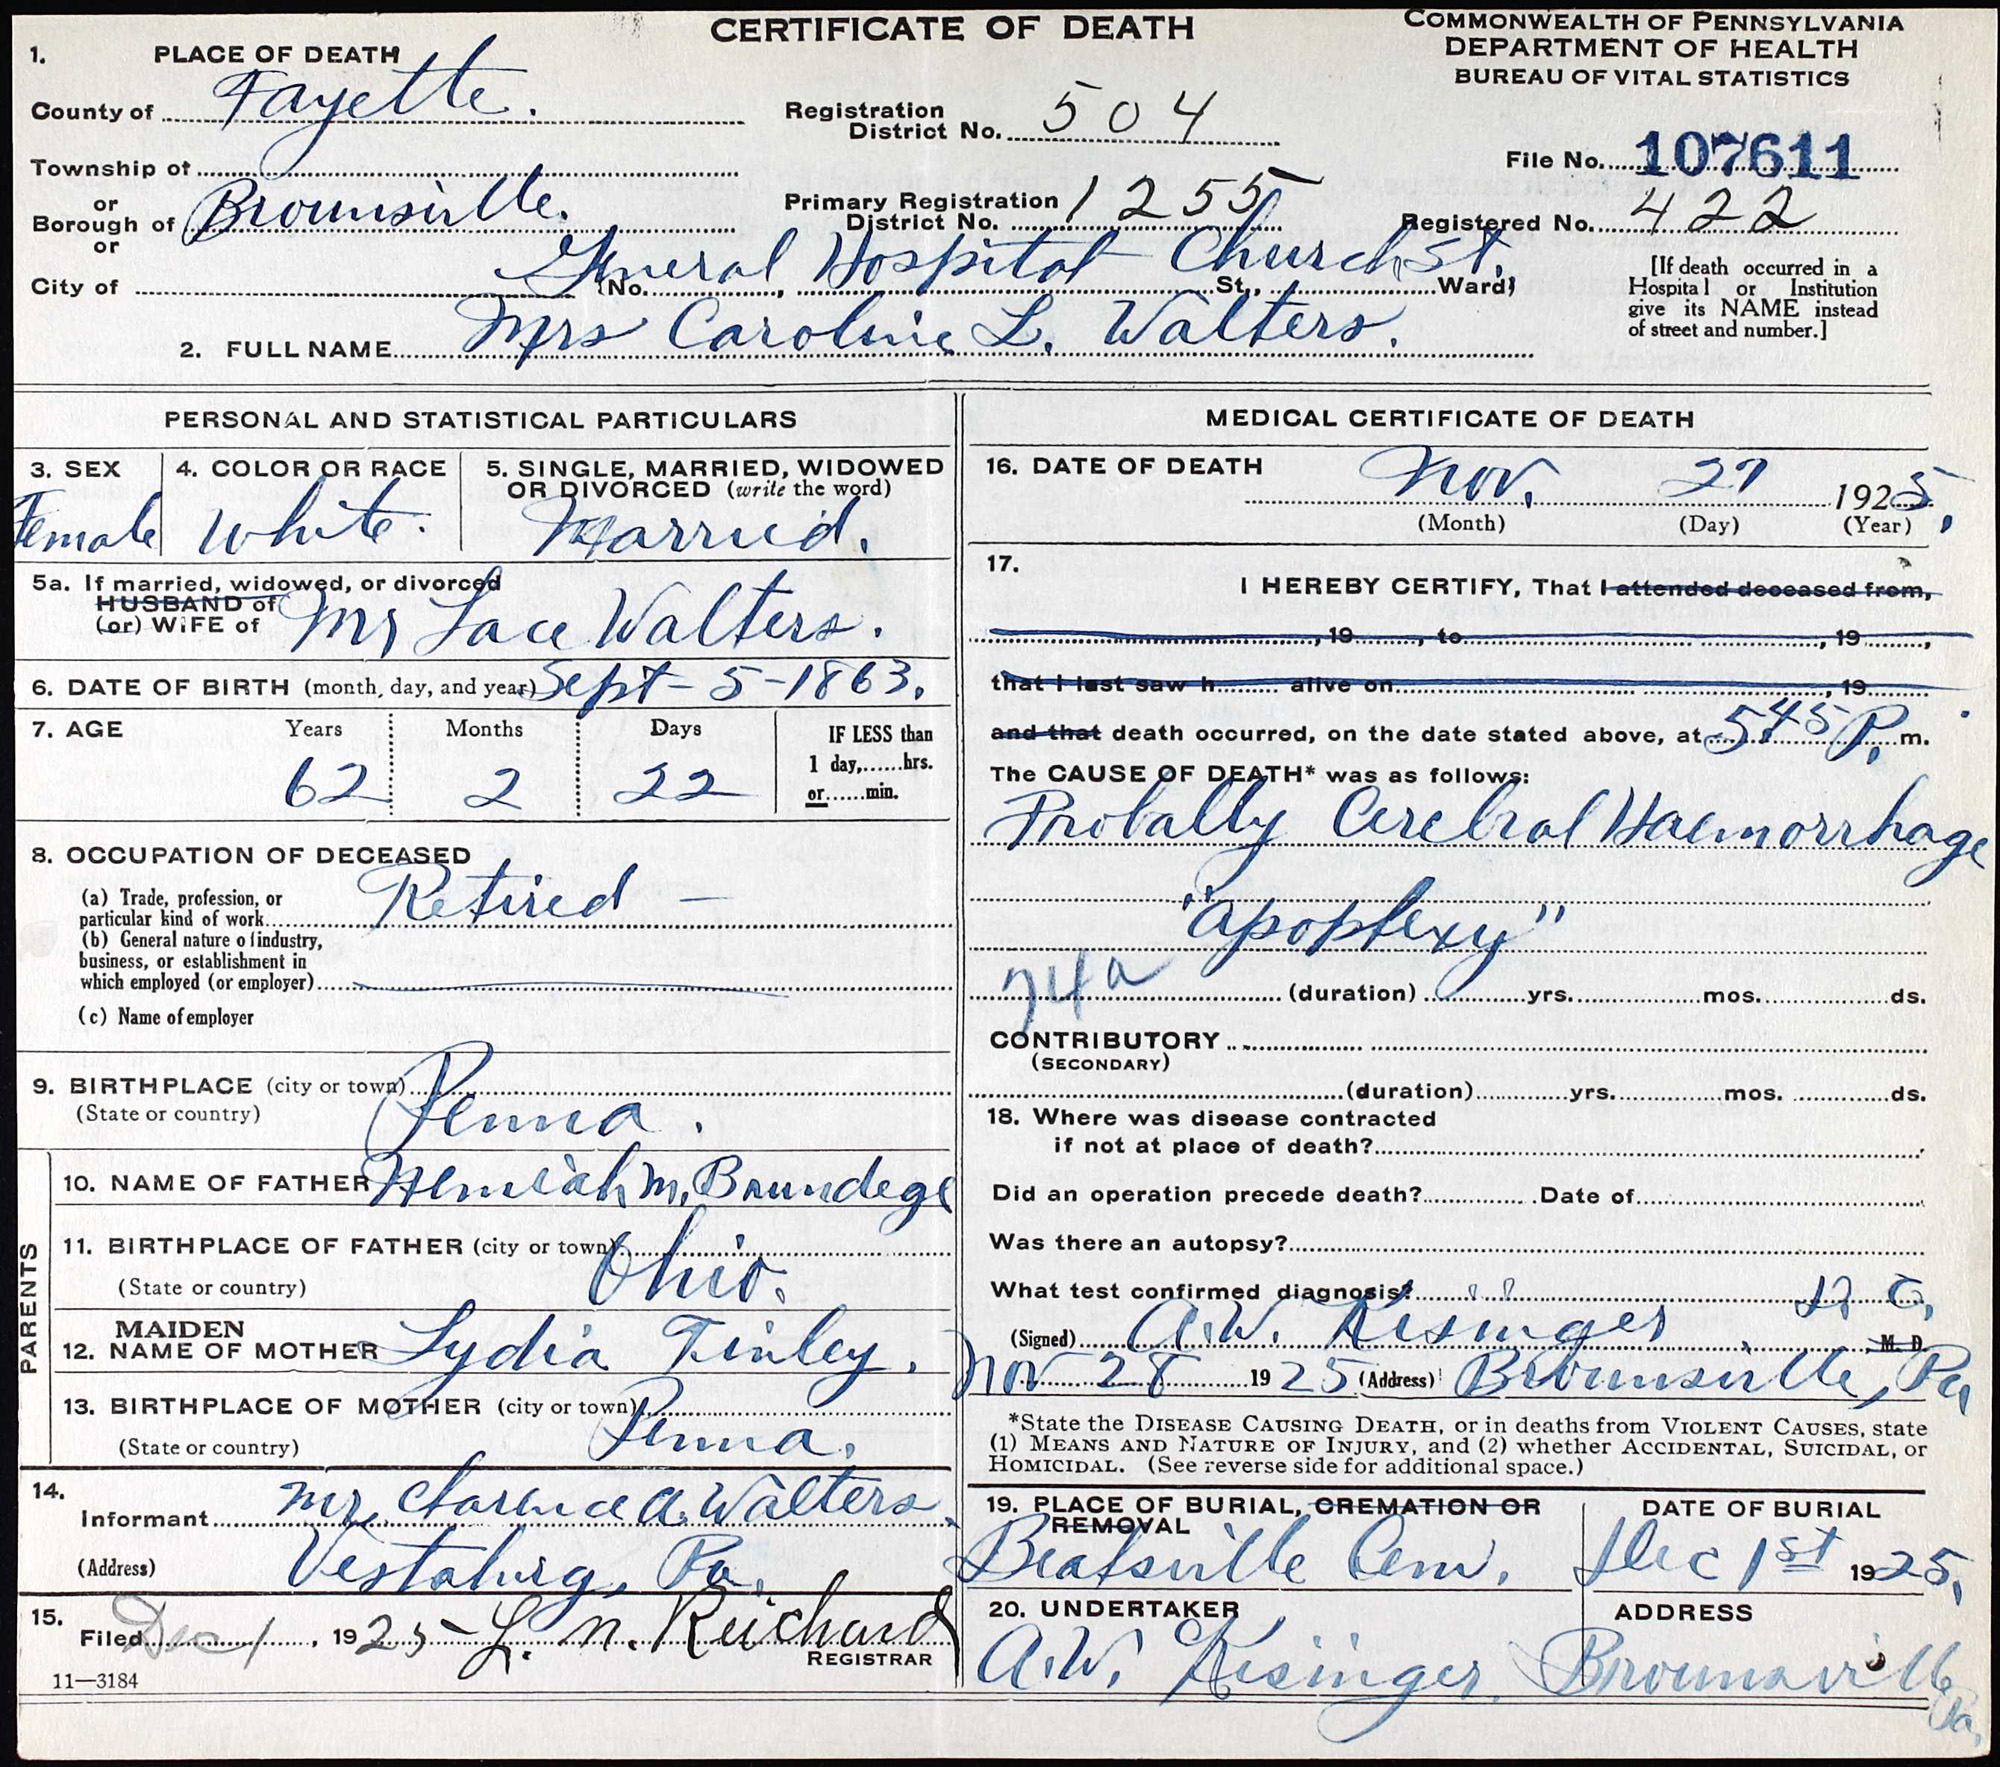 CERTIFICATE OF DEATH
COMMONWEALTH OF PENNSYLVANIA
DEPARTMENT OF HEALTH
BUREAU OF VITAL STATISTICS
1. PLACE OF DEATH
County of Fayette.
Registration District No. 504
File No. 107611
Township of
or
Borough of Brownsville.
or
Primary Registration District No. 1255
Registered No. 422
City of (No. General Hospital Church St. St., Ward)
[If death occurred in a Hospital or Institution give its NAME instead of street and number.]
2. FULL NAME Mrs Caroline L. Walters.
PERSONAL AND STATISTICAL PARTICULARS
3. SEX Female
4. COLOR OR RACE White.
5. SINGLE, MARRIED, WIDOWED OR DIVORCED (write the word) Married.
5a. If married, widowed, or divorced
HUSBAND of
(or) WIFE of Mr Lace Walters.
6. DATE OF BIRTH (month, day, and year) Sept-5-1863.
7. AGE Years 62 Months 2 Days 22
IF LESS than
1 day,......hrs.
or......min.
8. OCCUPATION OF DECEASED
(a) Trade, profession, or
particular kind of work Retired -
(b) General nature of industry,
business, or establishment in
which employed (or employer)
(c) Name of employer
9. BIRTHPLACE (city or town)
(State or country) Penna.
PARENTS
10. NAME OF FATHER Nemiah M. Brundege
11. BIRTHPLACE OF FATHER (city or town)
(State or country) Ohio.
12. MAIDEN NAME OF MOTHER Lydia Finley.
13. BIRTHPLACE OF MOTHER (city or town)
(State or country) Penna.
14. Informant Mr. Clarence A. Walters.
(Address) Vestaburg, Pa.
15. Filed Dec 1, 1925 - L. N. Reichard
REGISTRAR
11—3184
MEDICAL CERTIFICATE OF DEATH
16. DATE OF DEATH Nov. 27 1925,
(Month) (Day) (Year)
17. I HEREBY CERTIFY, That I attended deceased from,
, 19 , to , 19 ,
that I last saw h alive on , 19
and that death occurred, on the date stated above, at 5.45 P. m.
The CAUSE OF DEATH* was as follows:
Probally Cerebral Haemorrhage
"apoplexy"
74a (duration) yrs. mos. ds.
CONTRIBUTORY
(SECONDARY)
(duration) yrs. mos. ds.
18. Where was disease contracted
if not at place of death?
Did an operation precede death? Date of
Was there an autopsy?
What test confirmed diagnosis?
(Signed) A.W. Kisinger M. D.
Nov 28 1925 (Address) Brownsville, Pa
*State the DISEASE CAUSING DEATH, or in deaths from VIOLENT CAUSES, state
(1) MEANS AND NATURE OF INJURY, and (2) whether ACCIDENTAL, SUICIDAL, or
HOMICIDAL. (See reverse side for additional space.)
19. PLACE OF BURIAL, CREMATION OR REMOVAL
Bealsville Cem.
DATE OF BURIAL
Dec 1st 1925.
20. UNDERTAKER
A.W. Kisinger.
ADDRESS
Brownsville Pa.